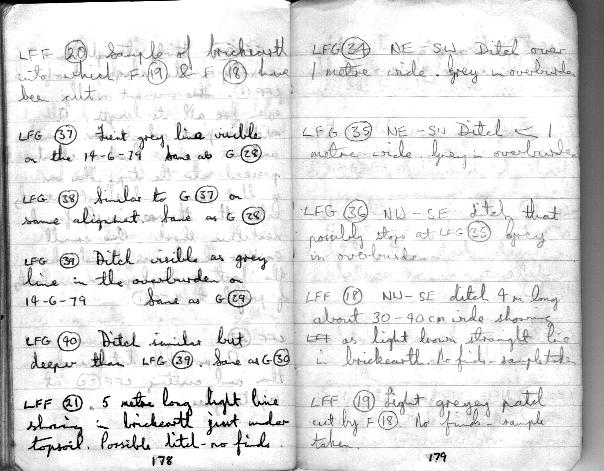 LFF (20) Sample of brickearth
into which F (19) & F (18) have
been cut
LFG (37) Feint grey line visible
on the 14-6-79 Same as G (28)
LFG (38) Similar to G (37) on
same alignment. Same as G (28)
LFG (39) Ditch visible as grey
line in the overburden on
14-6-79 Same as G (29)
LFG (40) Ditch similar but
deeper than LFG (39). Same as G (30)
LFF (21). 5 metre long light line
showing in brickearth just under
topsoil. Possible ditch - no finds.
178
LFG (34) NE-SW Ditch over
1 metre wide. Grey in overburden
LFG (35) NE-SW Ditch < 1
metre wide. Grey in overburden
LFG (36) NW-SE ditch that
possibly stops at LFG (35) grey
in overburden
LFF (18) NW-SE ditch 4m long
about 30-40cm wide showing
as light brown straight line
in brickearth. No finds - sample taken
LFF (19) Light greyey patch
cut by F (18). No finds - sample
taken.
179